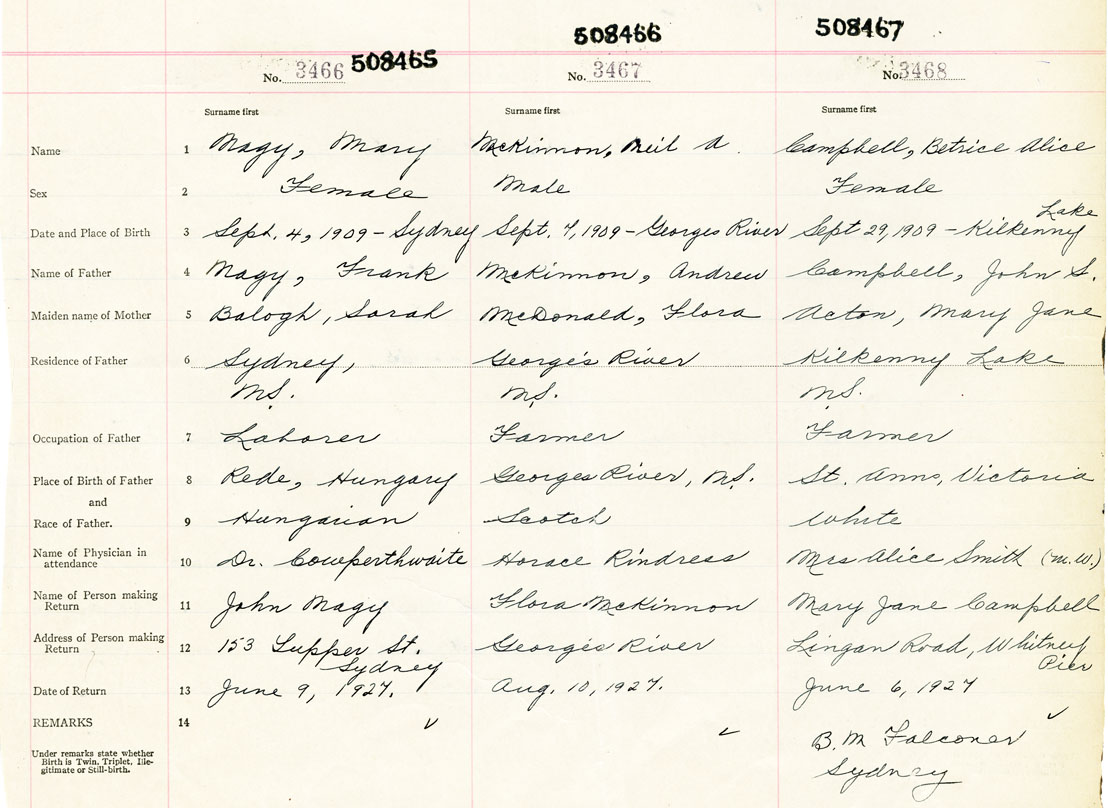 508465 508466 508467
No. 3466 No. 3467 No. 3468
Surname first Surname first Surname first
Name 1 Magy, Mary McKinnon, Neil A. Campbell, Betrice Alice
Sex 2 Female Male Female
Date and Place of Birth 3 Sept. 4, 1909 - Sydney Sept. 7, 1909 - Georges River Sept 29, 1909 - Kilkenny Lake
Name of Father 4 Magy, Frank McKinnon, Andrew Campbell, John S.
Maiden name of Mother 5 Balogh, Sarah McDonald, Flora Acton, Mary Jane
Residence of Father 6 Sydney, George's River Kilkenny Lake
N.S. N.S. N.S.
Occupation of Father 7 Laborer Farmer Farmer
Place of Birth of Father 8 Rede, Hungary Georges River, N.S. St. Anns, Victoria
and
Race of Father. 9 Hungarian Scotch White
Name of Physician in attendance 10 Dr. Cowperthwaite Horace Rindress Mrs Alice Smith (M.W.)
Name of Person making Return 11 John Magy Flora McKinnon Mary Jane Campbell
Address of Person making Return 12 153 Tupper St. Sydney George's River Lingan Road, Whitney Pier
Date of Return 13 June 9, 1927. Aug. 10, 1927. June 6, 1927
REMARKS 14
Under remarks state whether
Birth is Twin, Triplet, Ille-
gitimate or Still-birth.
B. M Falconer
Sydney